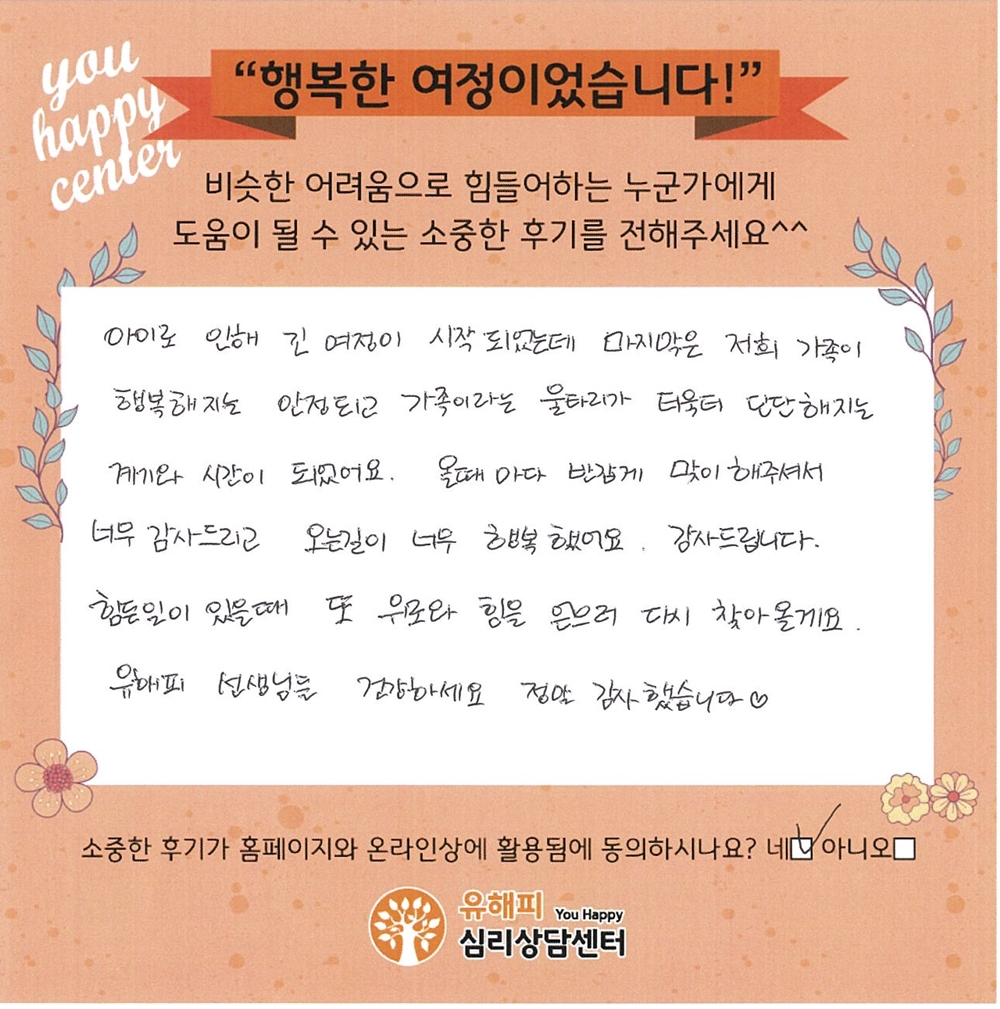 you
happy
center
“행복한 여정이었습니다!”
비슷한 어려움으로 힘들어하는 누군가에게
도움이 될 수 있는 소중한 후기를 전해주세요^^
아이로 인해 긴 여정이 시작되었는데 마지막은 저희 가족이
행복해지는 안정되고 가족이라는 울타리가 더욱더 단단해지는
계기와 시간이 되었어요. 올때마다 반갑게 맞이해주셔서
너무 감사드리고 오는길이 너무 행복했어요. 감사드립니다.
힘든일이 있을때 또 위로와 힘을 얻으러 다시 찾아올게요.
유해피 선생님들 건강하세요 정말 감사했습니다♡
소중한 후기가 홈페이지와 온라인상에 활용됨에 동의하시나요? 네☑ 아니오□
유해피 You Happy
심리상담센터